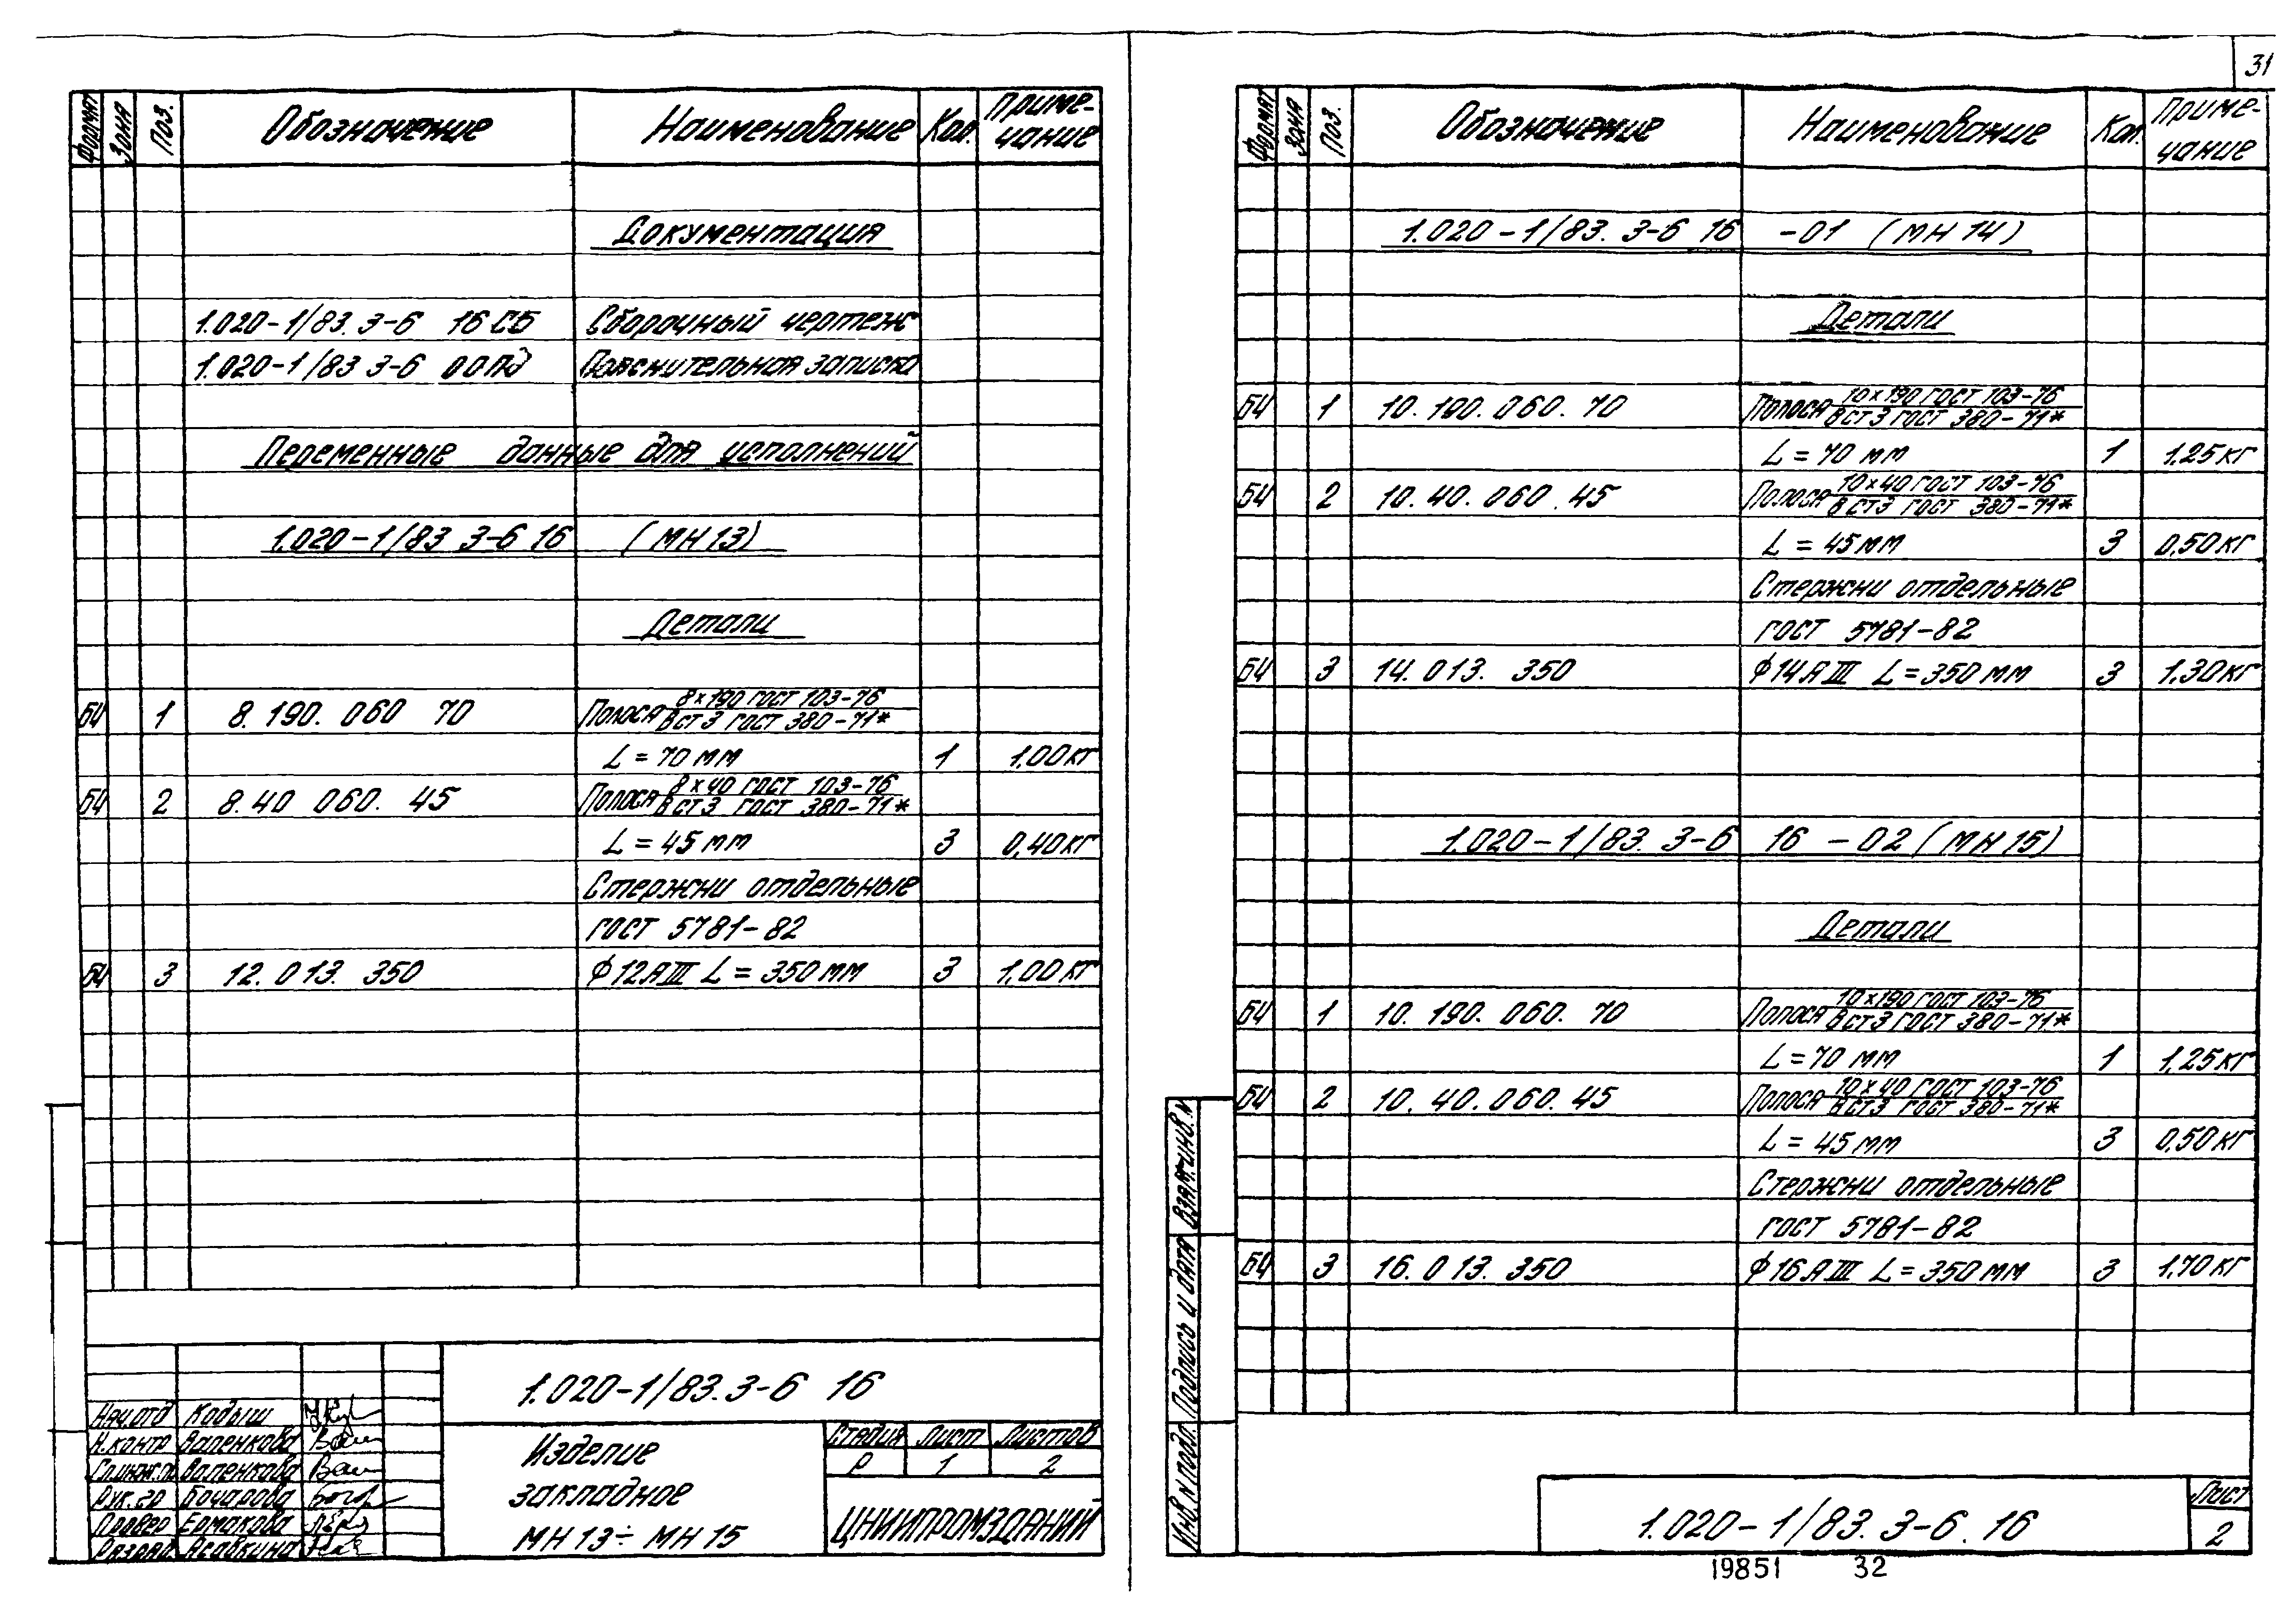 31
Формат Зона Поз. Обозначение Наименование Кол. Приме-
чание
Документация
1.020-1/83. 3-6 16 СБ Сборочный чертеж
1.020-1/83 3-6 00ПЗ Пояснительная записка
Переменные данные для исполнений
1.020-1/83 3-6 16 (МН13)
Детали
БЧ 1 8. 190. 060 70 Полоса 8×190 ГОСТ 103-76
ВСт3 ГОСТ 380-71*
L = 70 мм 1 1,00кг
БЧ 2 8. 40 060. 45 Полоса 8×40 ГОСТ 103-76
ВСт3 ГОСТ 380-71*
L = 45 мм 3 0,40кг
Стержни отдельные
ГОСТ 5781-82
БЧ 3 12. 013. 350 ф12АIII L = 350мм 3 1,00кг
1.020-1/83. 3-6 16
Нач.отд Кодыш
Н.контр Валенкова
Гл.инж.п Валенкова
Рук.гр Бочарова
Провер Ермакова
Разраб. Асабкина
Изделие
закладное
МН 13÷ МН 15
Стадия Лист Листов
Р 1 2
ЦНИИПРОМЗДАНИЙ
Формат Зона Поз. Обозначение Наименование Кол. Приме-
чание
1.020-1/83. 3-6 16 -01 (МН 14)
Детали
БЧ 1 10. 190. 060. 70 Полоса 10×190 ГОСТ 103-76
ВСт3 ГОСТ 380-71*
L = 70 мм 1 1,25кг
БЧ 2 10. 40. 060. 45 Полоса 10×40 ГОСТ 103-76
ВСт3 ГОСТ 380-71*
L = 45мм 3 0,50кг
Стержни отдельные
ГОСТ 5781-82
БЧ 3 14. 013. 350 ф14АIII L=350мм 3 1,30кг
1.020-1/83. 3-6 16 -02 (МН15)
Детали
БЧ 1 10. 190. 060. 70 Полоса 10×190 ГОСТ 103-76
ВСт3 ГОСТ 380-71*
L = 70 мм 1 1,25кг
БЧ 2 10. 40. 060. 45 Полоса 10×40 ГОСТ 103-76
ВСт3 ГОСТ 380-71*
L = 45мм 3 0,50кг
Стержни отдельные
ГОСТ 5781-82
БЧ 3 16. 013. 350 ф16АIII L=350мм 3 1,70кг
Взам.инв.N
Подпись и дата
Инв.N подл.
1.020-1/83. 3-6. 16
Лист
2
19851 32